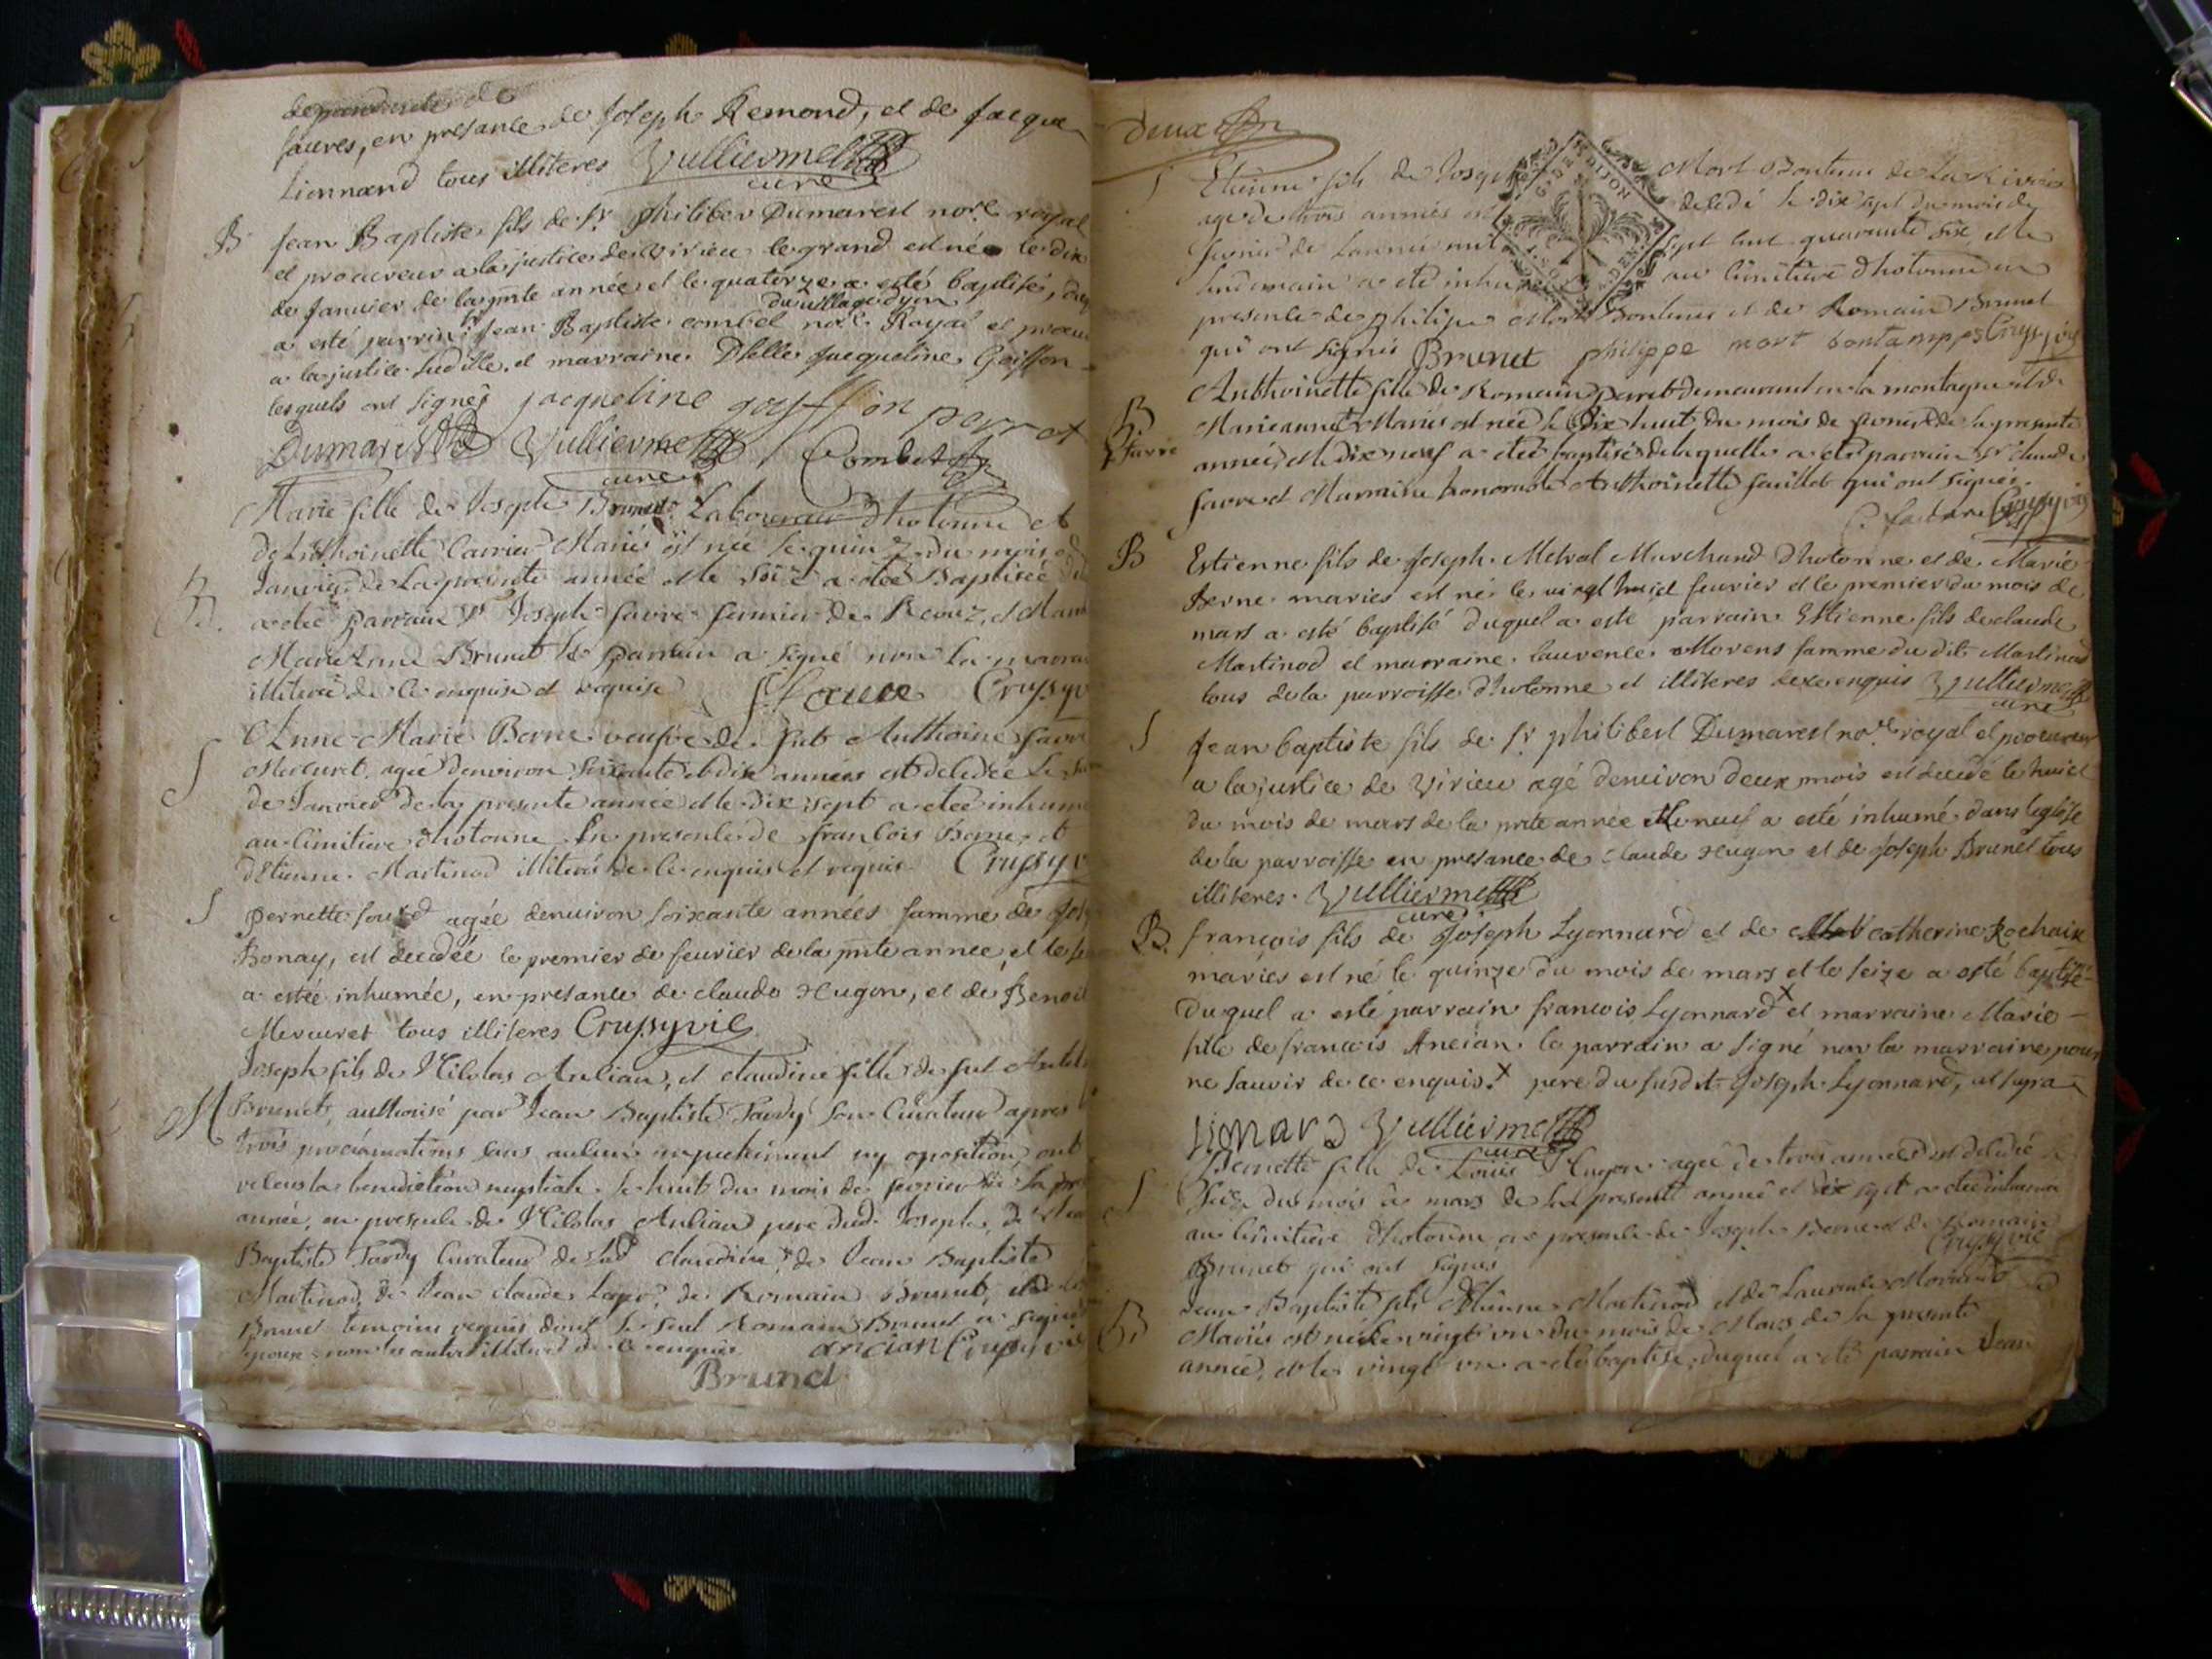 faures, en presance de Joseph Remond, et de Jacque
Lionnard tous illiteres Vulliermet
curé
B Jean Baptiste fils de Sr. philiber Dumarest nore. royal
et procureur a la justice de virieu le grand est né le dix
de Janvier de la pnte année et le quatorze a esté baptisé,
du village dyon
a esté parrin Sr Jean Baptiste combet nore. Royal et
a la justice sudille. et marraine. Dlle Jacqueline Goiffon
lesquels ont signés jacqueline goyffon perrot
Dumarest Vulliermet Combet
curé
Marie fille de Joseph Brunet Laboureur d'hotonne et
de Anthoinette Carrier Mariés est née le quinze du mois
Janvier de La presente année et le seize a eté Baptisée
B. a eté Parrain Sr Joseph favre fermier de
Marie Brunet le Parrain a signé non la
illiterée de ce enquise et requise
Anne Marie Berne veufve de fut Anthoine favre
S Mercuret agée denviron soixante et dix années est decedée
de Janvier de la presente année et le dix sept a eté
au cimitiere d'hotonne En presence de françois Berne et
d'Etienne Martinod illiterés de ce enquis et requis Crussy
S pernette agée denviron soixante années famme de
Bonay, est decedée le premier de feurier de la pnte annee, et le
a estée inhumée, en presance de claude Hugon, et de Benoit
Mercuret tous illiteres Crussyvie
Joseph fils de Nicolas Ancian, et claudine fille de fut
M Brunet, authorisé par Jean Baptiste Tardy son Curateur apres
trois proclamations sans aucun empechement ny oposition, ont
receus la benediction nuptiale le huit du mois de fevrier de la
année, en presence de Nicolas Ancian pere dud. Joseph, de
Baptiste Tardy Curateur de lad claudine, de Jean Baptiste
Martinod, de Jean claude de Romain Brunet,
Brunet temoins requis dont le seul Romain Brunet a signé
non les autres illiterés de ce enquis ancian
Brunet
deux
S Etienne fils de Joseph Mort Bontems de La Riviere
age de trois années est decedé le dix sept du mois de
fevrier de L'année mil sept cent quarante six et le
lendemain a eté au cimitiere d'hotonne en
presence de philipe Mort Bontems et de Romain Brunet
qui ont signés Brunet philippe mort bontamps Crussyvie
Anthoinette fille de Romain demeurant en la montagne et de
B. Marieanne Mariés est née le dix huit du mois de fevrier de la presente
favre année, et le dix neuf a eté baptisée de laquelle a eté parrain Sr claude
favre et Marraine honorable Anthoinette qui ont signés.
Crussyvie
B Estienne fils de Joseph. Metral Marchand d'hotonne et de Marie
Berne maries est né le vingt huict feurier et le premier du mois de
mars a esté baptisé duquel a este parrain Estienne fils de claude
Martinod et marraine laurence Morens famme du dit Martinod
tous de la parroisse d'hotonne et illiteres de ce enquis Vulliermet
curé
S Jean baptiste fils de Sr philibert Dumarest nore royal et procureur
a la justice de virieu agé denviron deux mois est decedé le huict
du mois de mars de la pnte année et le neuf a esté inhumé dans leglise
de la parroisse en presance de claude Hugon et de Joseph Brunet tous
illiteres. Vulliermet
curé
B. françois fils de Joseph Lyonnard et de catherine Rochaix
maries est né le quinze du mois de mars et le seize a esté baptisé
Duquel a esté parrain francois Lyonnard x et marraine Marie
fille de francois Ancian. le parrain a signé non la marraine pour
ne sauoir de ce enquis. x pere du susdit Joseph Lyonnard,
Lionard Vulliermet
curé
Pernette fille de Louis Hugon agée de trois années est decedée
S seize du mois de mars de la presente année et dix sept a eté inhumée
au cimitiere d'hotonne en presence de Joseph Berne et de Romain
Brunet qui ont signés Crussyvie
Jean Baptiste fils d'Etienne Martinod et de Laurence
B Mariés est né le vingt un du mois de Mars de la presente
année, et le vingt un a eté baptisé, duquel a eté parrain Jean